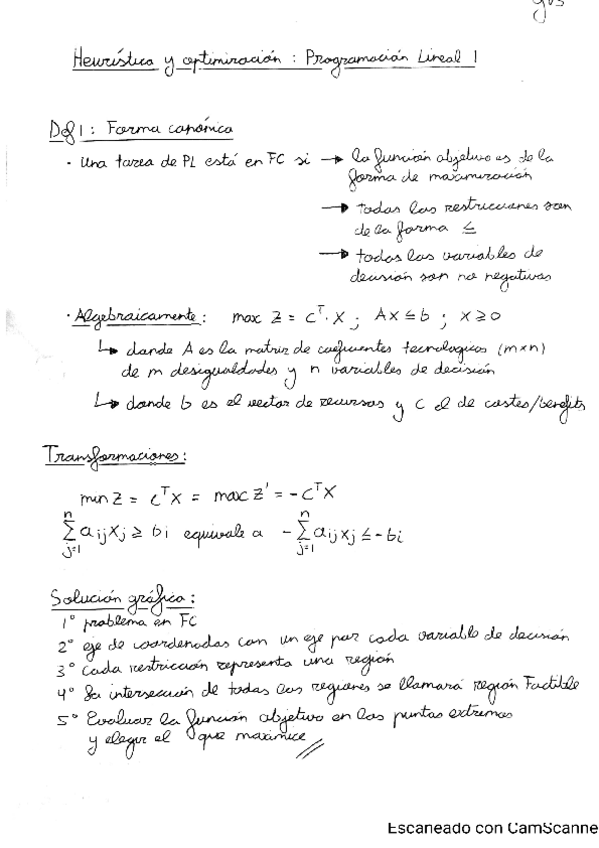 Heurística y optimización : Programación Lineal 1
Def 1 : Forma canónica
· Una tarea de PL está en FC si → la función objetivo es de la
forma de maximización
→ todas las restricciones son
de la forma ≤
→ todas las variables de
decisión son no negativas
· Algebraicamente : max Z = c^T · X ; AX ≤ b ; X ≥ 0
↳ donde A es la matriz de coeficientes tecnologicos (m×n)
de m desigualdades y n variables de decisión
↳ donde b es el vector de recursos y C el de costes/benefits
Transformaciones :
min Z = c^T X = max Z' = - C^T X
∑_{j=1}^{n} a_ij x_j ≥ b_i equivale a - ∑_{j=1}^{n} a_ij x_j ≤ - b_i
Solución gráfica :
1º problema en FC
2º eje de coordenadas con un eje por cada variable de decisión
3º Cada restricción representa una región
4º La intersección de todas las regiones se llamará región Factible
5º Evaluar la función objetivo en los puntos extremos
y elegir el que maximice
Escaneado con CamScanne